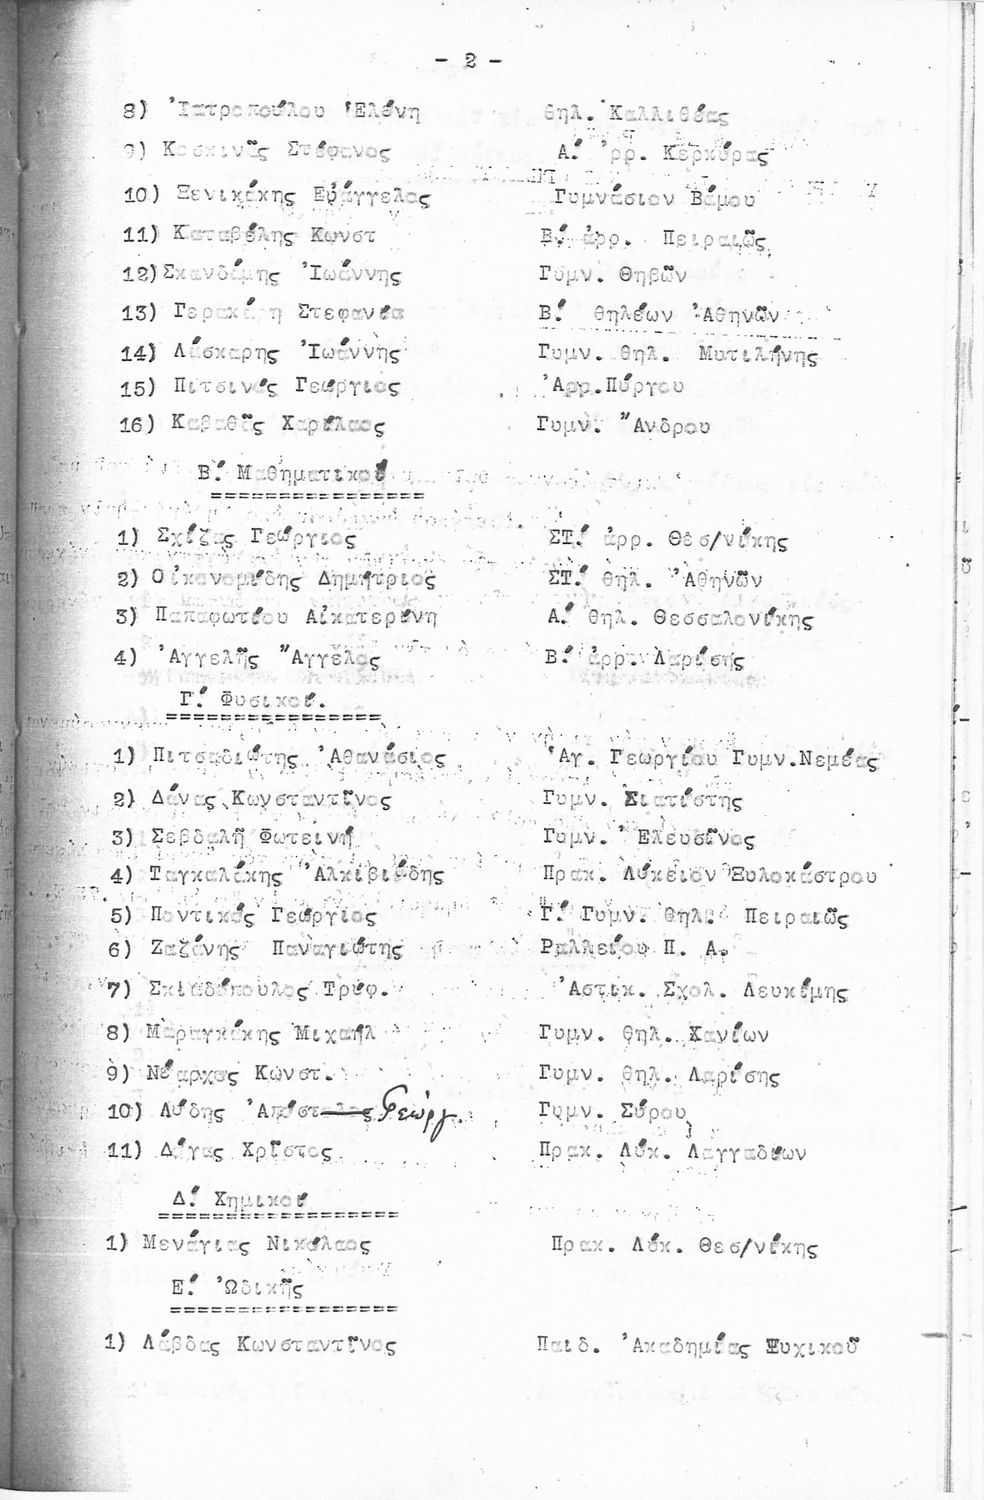 - 2 -
8) Ἰατροπούλου Ἑλένη θηλ. Καλλιθέας
9) Κοσκινᾶς Στέφανος Α΄. ἀρρ. Κερκύρας
10) Ξενικάκης Εὐάγγελος Γυμνάσιον Βάμου
11) Καταβέλης Κωνστ Β΄. ἀρρ. Πειραιῶς
12) Σκανδάμης Ἰωάννης Γυμν. Θηβῶν
13) Γερακάρη Στεφανία Β΄. θηλέων Ἀθηνῶν
14) Λάσκαρης Ἰωάννης Γυμν. θηλ. Μυτιλήνης
15) Πιτσινός Γεώργιος Ἀρρ. Πύργου
16) Καβαθᾶς Χαρίλαος Γυμν. Ἄνδρου
Β΄. Μαθηματικοί
1) Σχίζας Γεώργιος ΣΤ΄. ἀρρ. Θεσ/νίκης
2) Οἰκονομίδης Δημήτριος ΣΤ΄. θηλ. Ἀθηνῶν
3) Παπαφωτίου Αἰκατερίνη Α΄. θηλ. Θεσσαλονίκης
4) Ἀγγελῆς Ἄγγελος Β΄. ἀρρ. Λαρίσης
Γ΄. Φυσικοί.
1) Πιτσαδιώτης Ἀθανάσιος Ἁγ. Γεωργίου Γυμν. Νεμέας
2) Δάνας Κωνσταντῖνος Γυμν. Σιατίστης
3) Σεβδαλῆ Φωτεινή Γυμν. Ἐλευσῖνος
4) Ταγκαλάκης Ἀλκιβιάδης Πρακ. Λύκειον Ξυλοκάστρου
5) Ποντικός Γεώργιος Γ΄. Γυμν. θηλ. Πειραιῶς
6) Ζαζάνης Παναγιώτης Ραλλείου Π. Α.
7) Σκιαδόπουλος Τρύφ. Ἀστικ. Σχολ. Λευκίμης
8) Μαραγκάκης Μιχαήλ Γυμν. θηλ. Χανίων
9) Νέαρχος Κωνστ. Γυμν. θηλ. Λαρίσης
10) Λύδης Ἀπόστολος Γεώργ. Γυμν. Σύρου
11) Δάγας Χρῖστος Πρακ. Λύκ. Λαγγαδίων
Δ΄. Χημικοί
1) Μενάγιας Νικόλαος Πρακ. Λύκ. Θεσ/νίκης
Ε΄. Ὠδικῆς
1) Λάβδας Κωνσταντῖνος Παιδ. Ἀκαδημίας Ψυχικοῦ